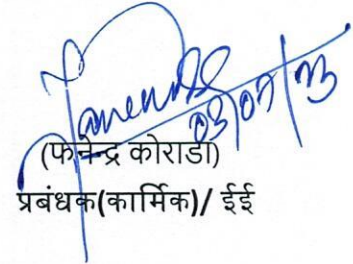 03/07/23
(फनेन्द्र कोराडा)
प्रबंधक(कार्मिक)/ ईई